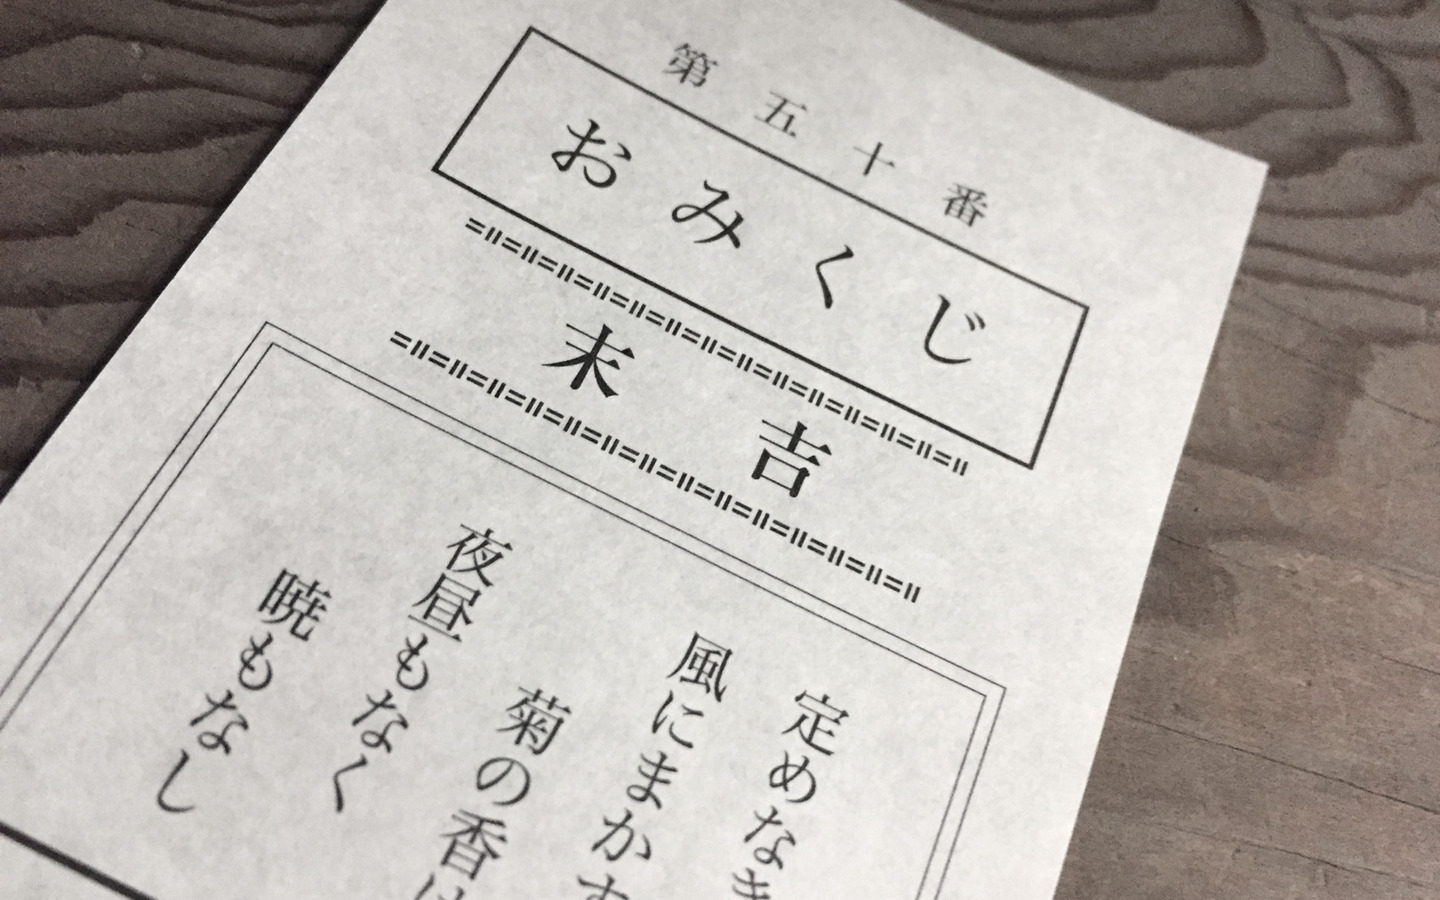 第五十番
おみくじ
末吉
定めなき
風にまかす
菊の香は
夜昼もなく
暁もなし